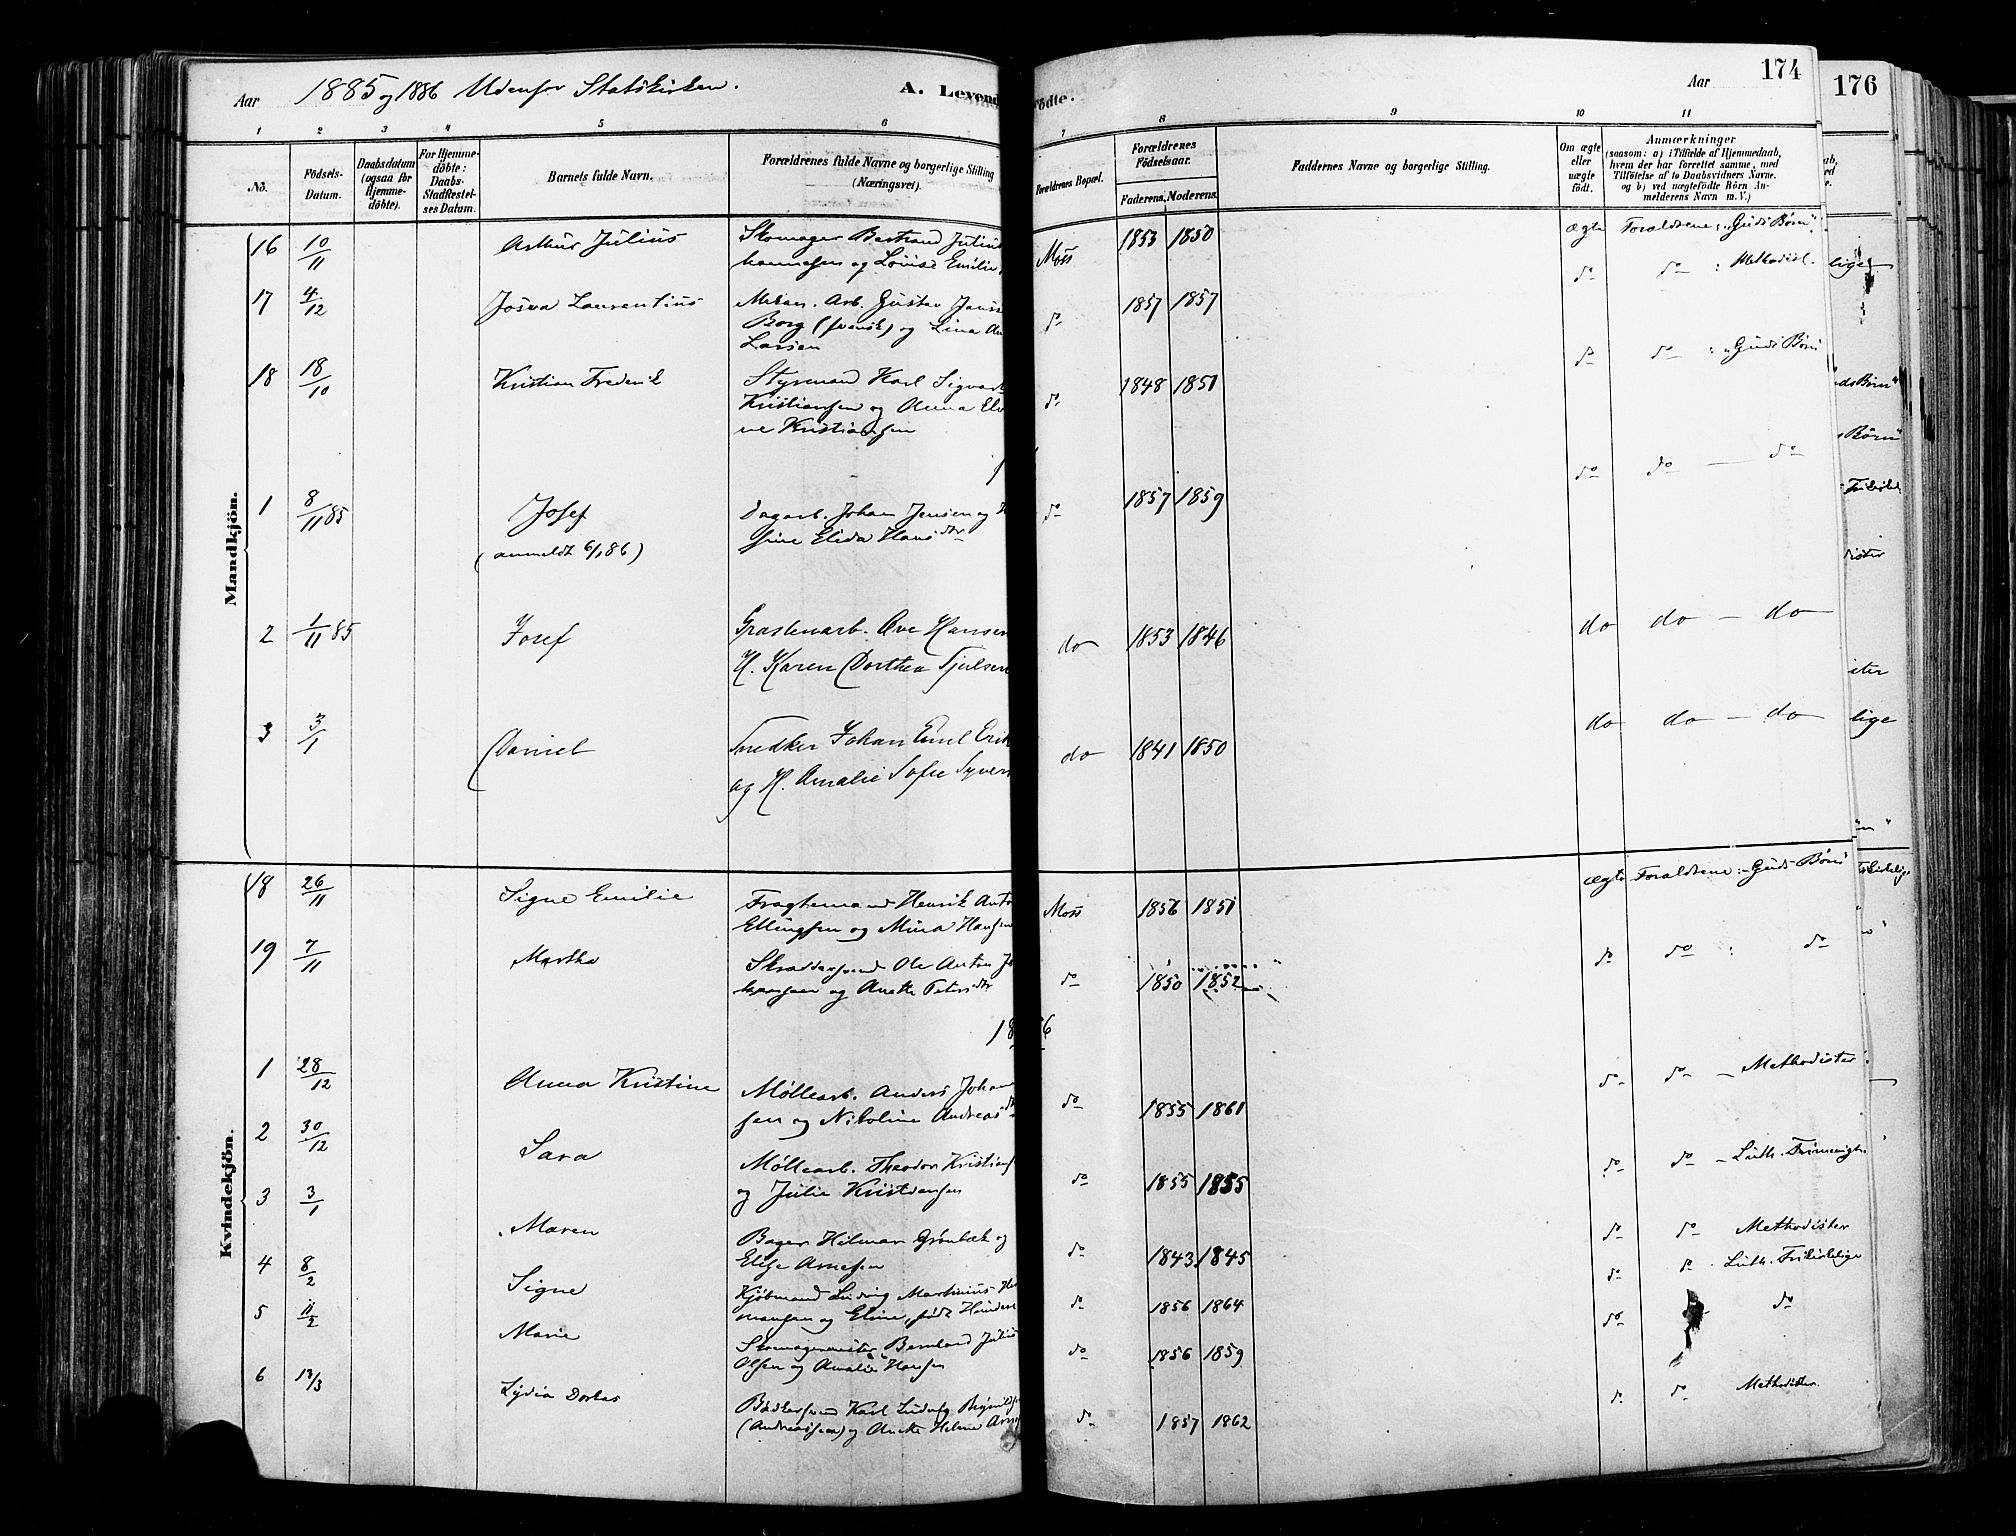 Aar 1885 og 1886 Udenfor Statskirken. A. Levend
1 2 3 4 5 6
No. Födsels-Datum. Daabsdatum (ogsaa for Hjemme-döbte). For Hjemme-döbte: Daabs-Stadfæstel-ses Datum. Barnets fulde Navn. Forældrenes fulde Navne og borgerlige Stilling (Næringsvei).
Mandkjön.
16 10/11 Arthur Julius Skomager Bertrand Julius
hannesen og Lovise Emilie
17 4/12 Josva Laurentius Mekan. Arb. Gustav Jans
Borg (svensk) og Lina An
Larsen
18 18/10 Kristian Frederik Styrmand Karl Sigvart
Kristiansen og Anna El
ne Kristiansen
1 8/11 85 Josef Dagarb. Johan Jensen og
(anmeldt 6/1 86) sine Elida Hansdtr
2 1/11 85 Josef Grastenarb. Ave Hansen
H. Karen Dorthea Tjulsen
3 3/1 Daniel Snedker Johan Emil Erik
og H. Amalie Sofie Syvers
Kvindekjön.
18 26/11 Signe Emilie Fragtemand Henrik Anto
Ellingsen og Mina Hansen
19 7/11 Martha Skræddersvend Ole Anton J
hansen og Anette Petersdtr
1 28/12 Anna Kristine Møllearb. Anders Johan
sen og Nikoline Andreasdtr
2 30/12 Sara Møllearb. Theodor Kristians
og Julie Kristiansen
3 3/1 Maren Bager Hilmar Grønbæk og
Elise Arnesen
4 8/2 Signe Kjøbmand Ludvig Martinius H
mansen og Eline, født Hendri
5 11/2 Marie Skomagermester Bernhard Julius
Olsen og Amalie Hansen
6 13/3 Lydia Dorkas Bødkersvend Karl Ludvig
(Andreassen) og Anette Helene
ödte. Aar 174
7 8 9 10 11
Forældrenes Bopæl. Forældrenes Födselsaar. Faderens. Moderens. Faddernes Navne og borgerlige Stilling. Om ægte eller uægte födt. Anmærkninger
(saasom: a) i Tilfælde af Hjemmedaab,
hvem der har forrettet samme, med
Tilföielse af to Daabsvidners Navne.
og b) ved uægtefödte Börn An-
melderens Navn m. V.)
Moss 1853 1850 ægte Forældrene: "Guds Børn".
do 1857 1857 do do : Methodist.
do 1848 1851 do do : "Guds Børn
do 1857 1859 do do — do
do 1853 1846 do do — do
do 1841 1850 do do — do
Moss 1856 1851 ægte Forældrene: Guds Børn
do 1850 1852 do do : do
1886
do 1855 1861 do do — Methodister
do 1855 1855 do do — Luth. Frimenigh
do 1843 1845 do do Methodister
do 1856 1864 do do Luth. Frikirkelige
do 1856 1859 do do
do 1857 1862 do do Methodister.
176